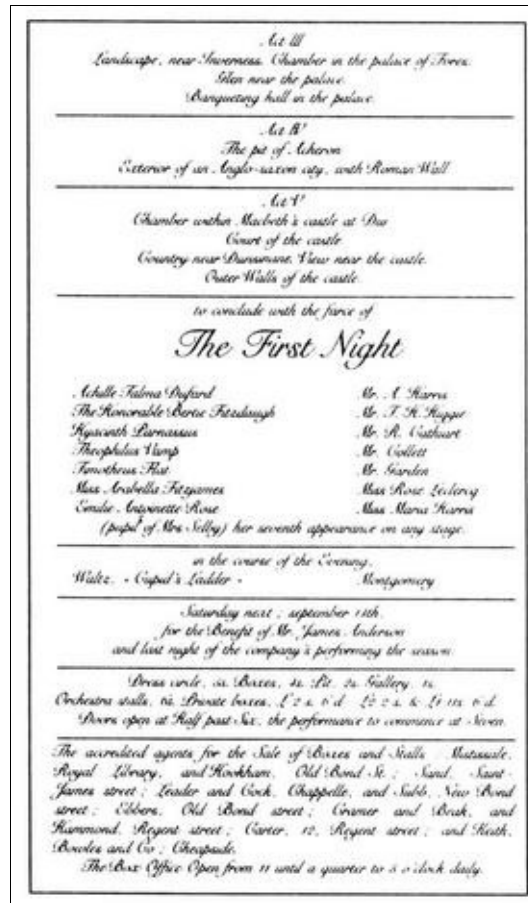 Act III
Landscape, near Inverness, Chamber in the palace of Fores.
Glen near the palace.
Banqueting hall in the palace.
Act IV
The pit of Acheron
Exterior of an Anglo-saxon city, with Roman Wall
Act V
Chamber within Macbeth's castle at Dus
Court of the castle
Country near Dunsinane, View near the castle.
Outer Walls of the castle.
to conclude with the farce of
The First Night
Achille Talma Dufard Mr. A. Harris
The Honorable Bertie Fitzdaugh Mr. T. H. Higgie
Hyacinth Parnassus Mr. R. Cathcart
Theophilus Vamp Mr. Collett
Timotheus Flat Mr. Garden
Miss Arabella Fitzjames Miss Rose Leclercq
Emilie Antoinette Rose Miss Maria Harris
(pupil of Mrs Selby) her seventh appearance on any stage.
in the course of the Evening,
Waltz, - Cupid's Ladder - Montgomery
Saturday next ; september 11th,
for the Benefit of Mr. James Anderson
and last night of the company's performing the season
Dress circle, Boxes, Pit, Gallery,
Orchestra stalls, Private boxes,
Doors open at Half past Six, the performance to commence at Seven.
The accredited agents for the Sale of Boxes and Stalls
Royal Library, and Hookham, Old Bond St. ; Sand, Saint-
James street ; Leader and Cock, Chappelle, and Subb, New Bond
street ; Ebbers, Old Bond street ; Cramer and Beak, and
Hammond, Regent street ; Carter, 12, Regent street ; and Keith,
Bowles and Co ; Cheapside.
The Box Office Open from 11 until a quarter to 5 o'clock daily.